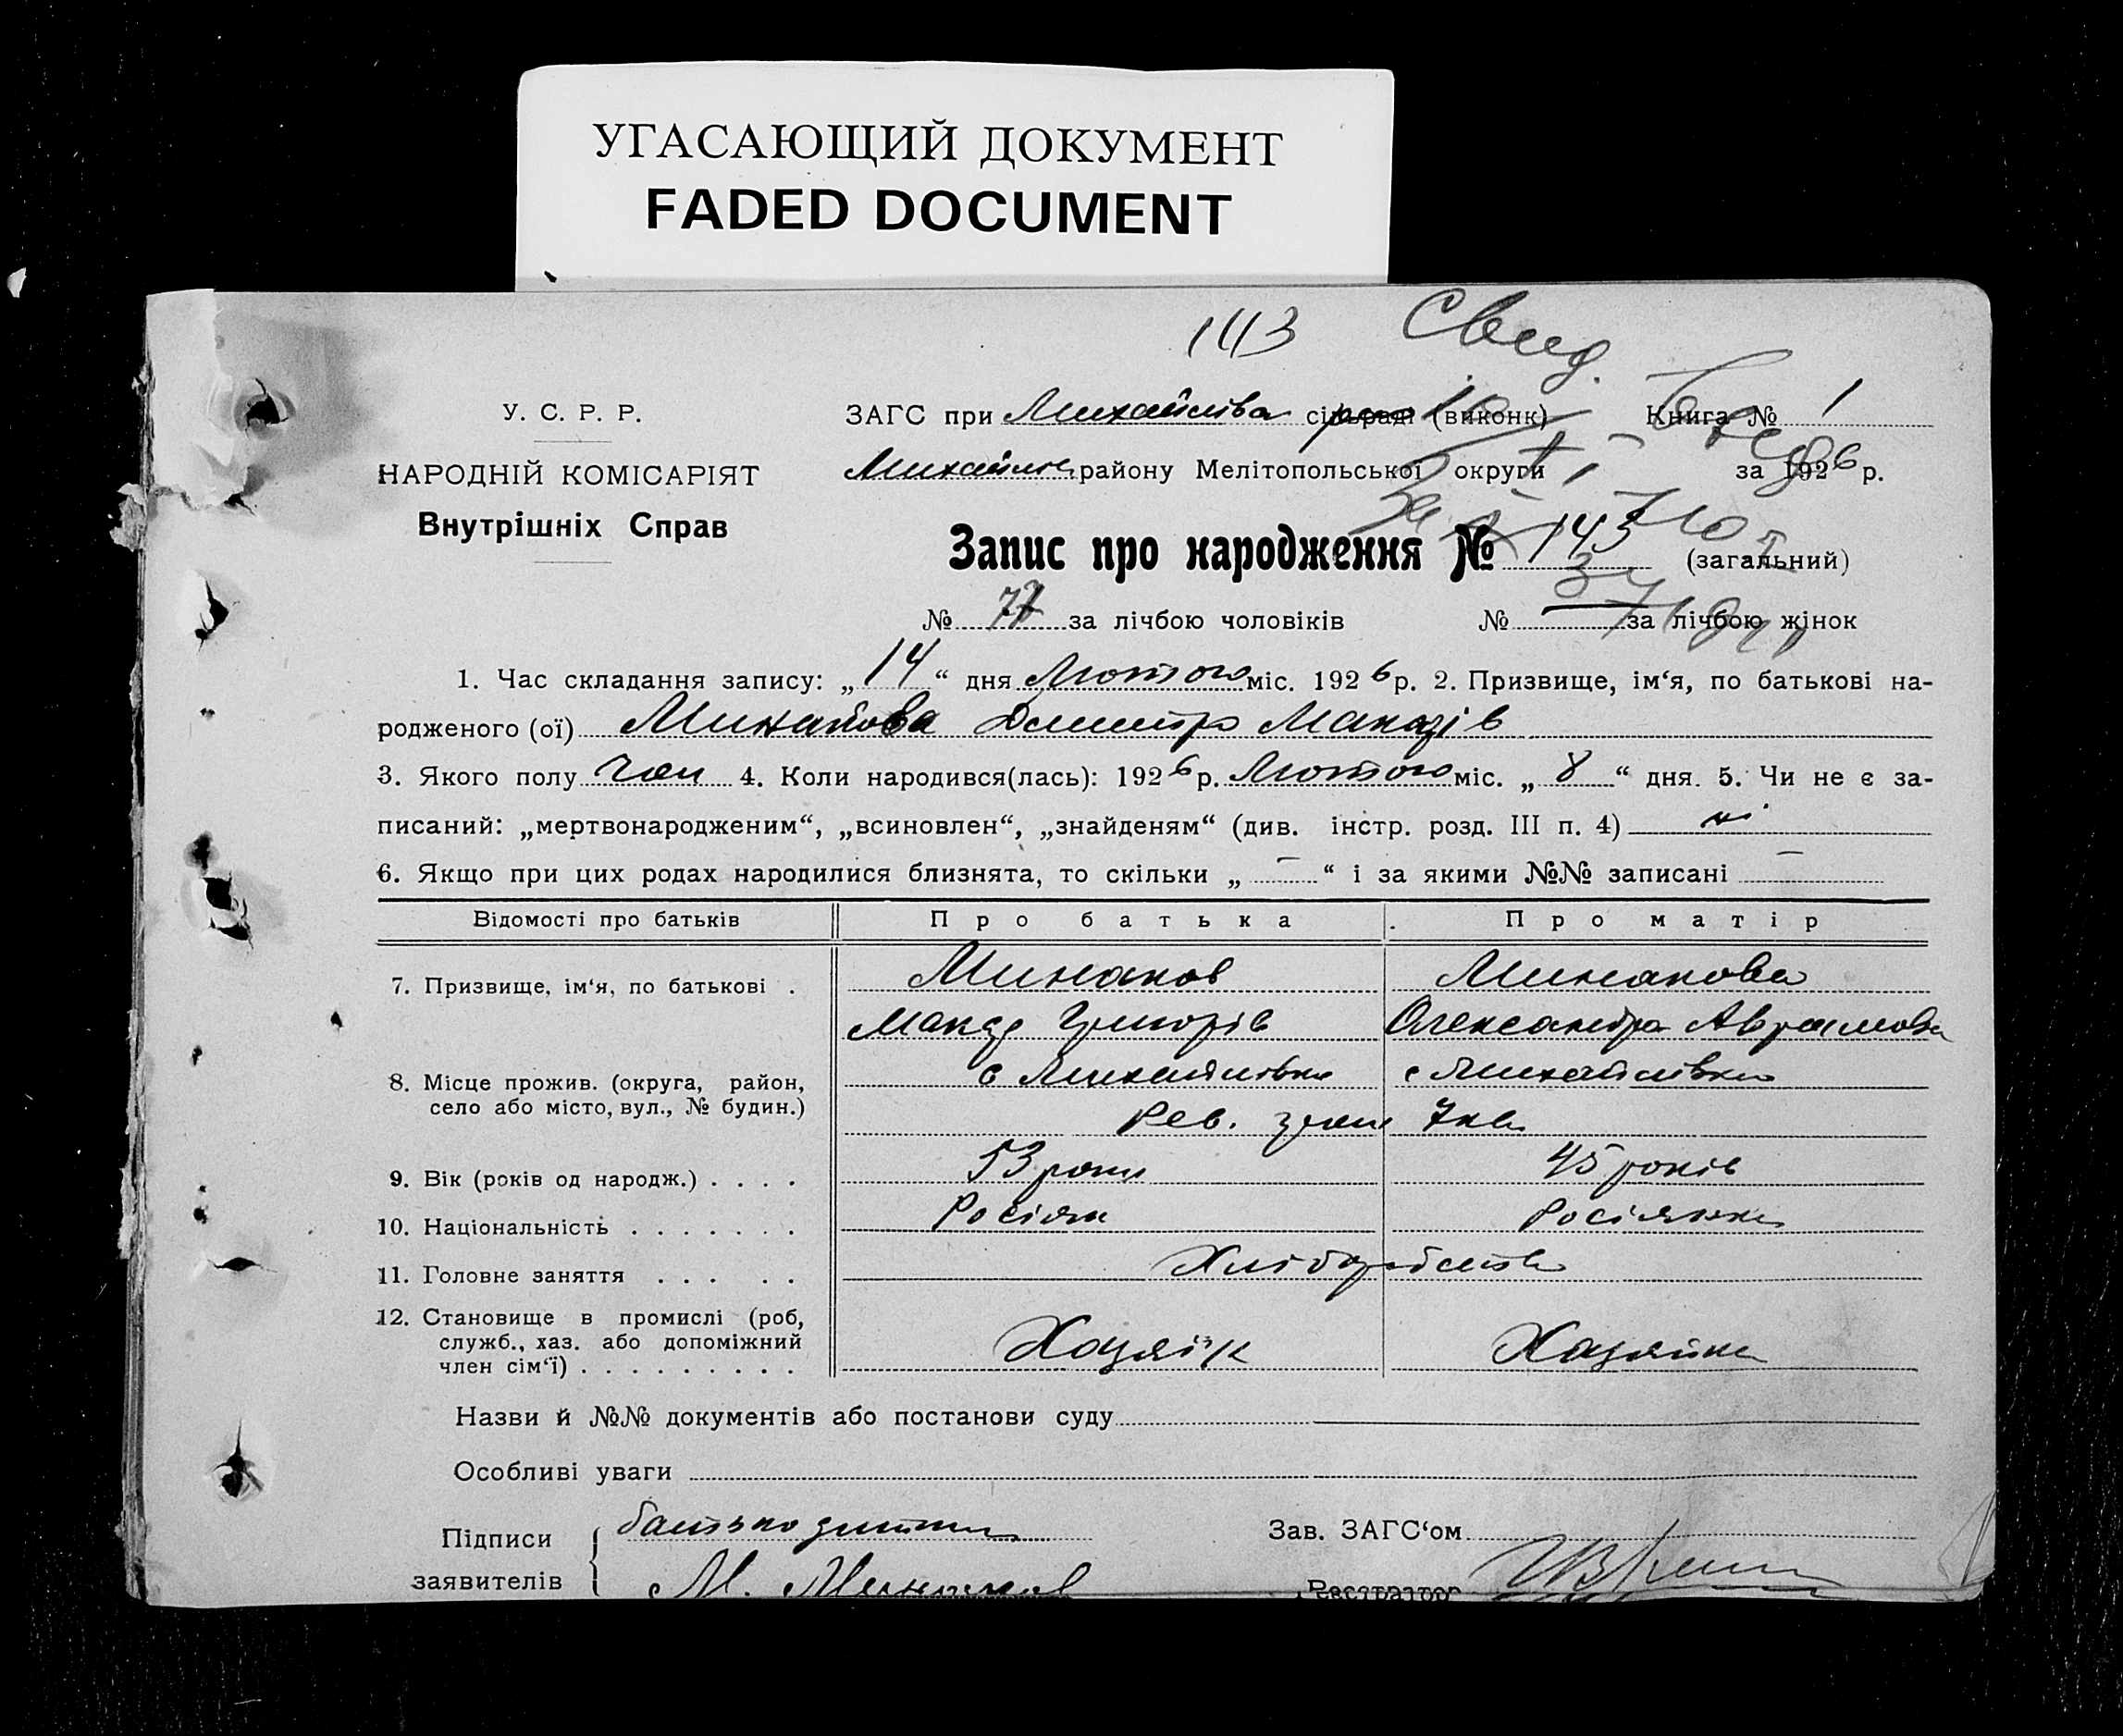 УГАСАЮЩИЙ ДОКУМЕНТ
FADED DOCUMENT
143 Свид.
У. С. Р. Р.
ЗАГС при Михайлівск сільраді (виконк) Книга № 1
НАРОДНІЙ КОМІСАРІЯТ
району Мелітопольської округи за 1926 р.
Внутрішніх Справ
Запис про народження № 143 (загальний)
№ 77 за лічбою чоловіків № за лічбою жінок
1. Час складання запису: „14“ дня Лютого міс. 1926 р. 2. Призвище, ім‘я, по батькові на-
родженого (ої) Минакова Дмитро Макарів
3. Якого полу чол 4. Коли народився(лась): 1926 р. Лютого міс. „8“ дня. 5. Чи не є за-
писаний: „мертвонародженим“, „всиновлен“, „знайденям“ (див. інстр. розд. III п. 4) ні
6. Якщо при цих родах народилися близнята, то скільки „ – “ і за якими №№ записані –
Відомості про батьків Про батька Про матір
7. Призвище, ім‘я, по батькові . Минаков Минакова
Макар Григорів Олександра Аврамова
8. Місце прожив. (округа, район, с Михайлівка с Михайлівка
село або місто, вул., № будин.) Рев. 7 кв
9. Вік (років од народж.) . . . . 53 роки 45 років
10. Національність . . . . . . . Росіян Росіянка
11. Головне заняття . . . . . Хліборобство
12. Становище в промислі (роб,
служб., хаз. або допоміжний Хазяїн Хазяйка
член сім‘ї) . . . . . . . . .
Назви й №№ документів або постанови суду
Особливі уваги
Підписи батько дитини Зав. ЗАГС‘ом
заявителів М. Минаков Реєстратор